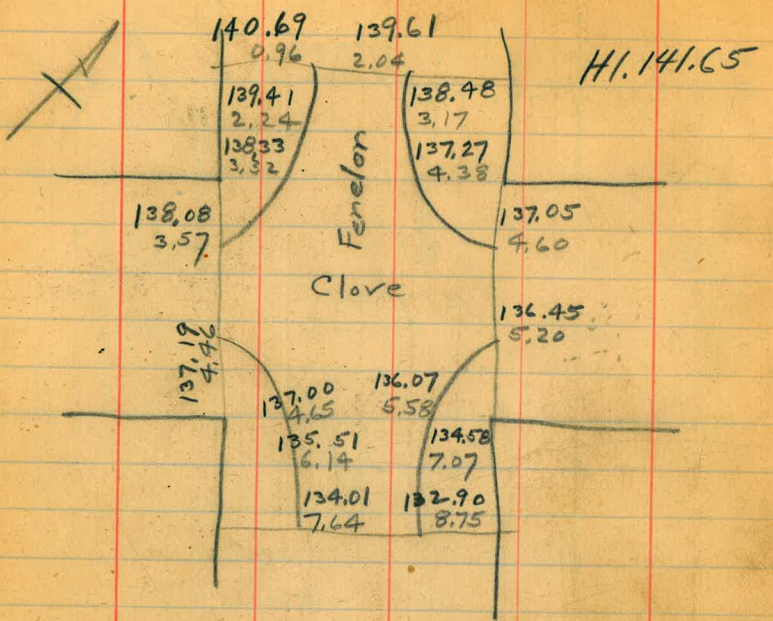 140.69
0.96
139.61
2.04
H1.141.65
139.41
2.24
138.33
3.32
138.48
3.17
137.27
4.38
Fenelon
138.08
3.57
137.05
4.60
Clove
136.45
5.20
137.19
4.46
137.00
4.65
136.07
5.58
135.51
6.14
134.58
7.07
134.01
7.64
132.90
8.75